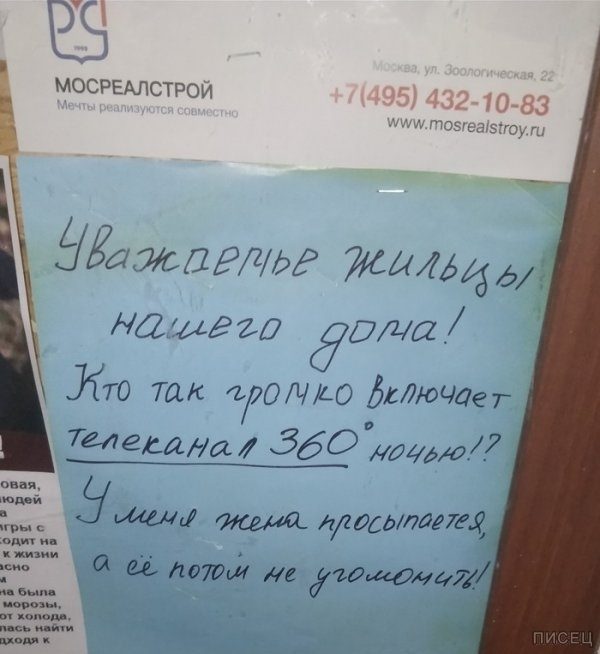 РС
1999
МОСРЕАЛСТРОЙ
Мечты реализуются совместно
Москва, ул. Зоологическая, 22
+7(495) 432-10-83
www.mosrealstroy.ru
Уважаемые жильцы
нашего дома!
Кто так громко включает
телеканал 360° ночью!?
У меня жена просыпается,
а её потом не угомонить!
овая,
юдей
а
игры с
ходит на
к жизни
асно
м
на была
морозы,
от холода,
лась найти
дходя к
ПИСЕЦ